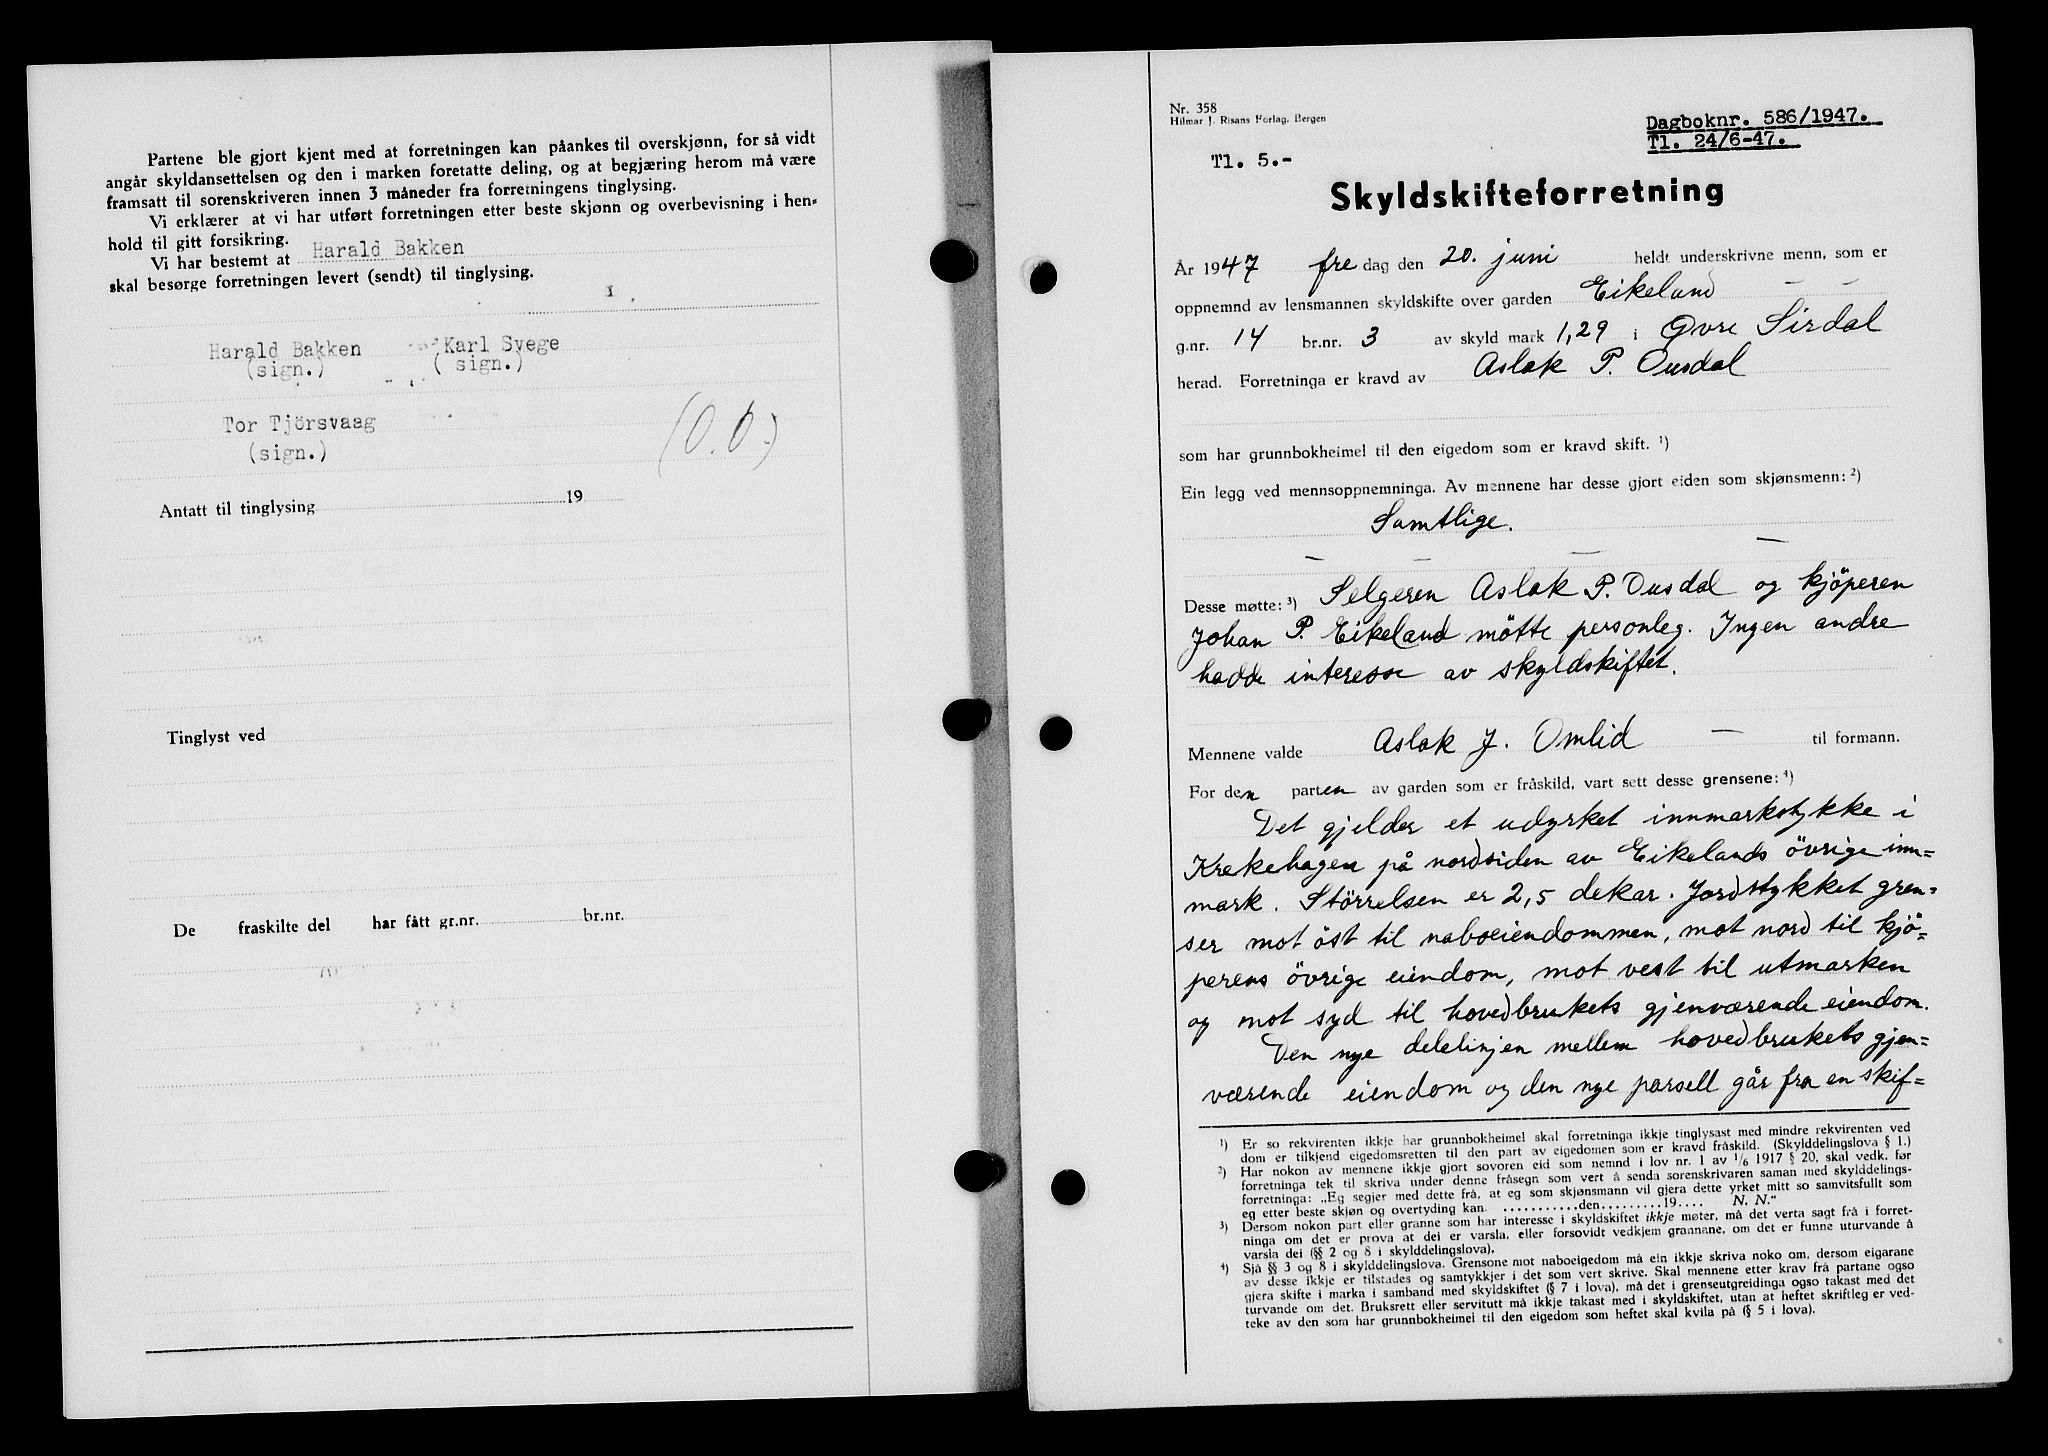 Partene ble gjort kjent med at forretningen kan påankes til overskjønn, for så vidt
angår skyldansettelsen og den i marken foretatte deling, og at begjæring herom må være
framsatt til sorenskriveren innen 3 måneder fra forretningens tinglysing.
Vi erklærer at vi har utført forretningen etter beste skjønn og overbevisning i hen-
hold til gitt forsikring.
Vi har bestemt at Harald Bakken
skal besørge forretningen levert (sendt) til tinglysing.
Harald Bakken Karl Svege
(sign.) ( sign.)
Tor Tjörsvaag
(sign.)
(O.O.)
Antatt til tinglysing 19
Tinglyst ved
De fraskilte del har fått gr.nr. br.nr.
Nr. 358
Hilmar J. Risans Forlag, Bergen
Dagboknr. 586/1947.
Tl. 24/6-47.
Tl. 5.-
Skyldskifteforretning
År 1947 fredag den 20. juni heldt underskrivne menn, som er
oppnemnd av lensmannen skyldskifte over garden Eikeland
g.nr. 14 br.nr. 3 av skyld mark 1,29 i Øvre Sirdal
herad. Forretninga er kravd av Aslak P. Ousdal
som har grunnbokheimel til den eigedom som er kravd skift. 1)
Ein legg ved mennsoppnemninga. Av mennene har desse gjort eiden som skjønsmenn: 2)
Samtlige.
Desse møtte: 3) Selgeren Aslak P. Ousdal og kjöperen
Johan P. Eikeland mötte personleg. Ingen andre
hadde interesse av skyldskiftet.
Mennene valde Aslak J. Omlid til formann.
For den parten av garden som er fråskild, vart sett desse grensene: 4)
Det gjelder et udyrket innmarkstykke i
Krekehagen på nordsiden av Eikelands övrige inn=
mark. Störrelsen er 2,5 dekar. Jordstykket gren=
ser mot öst til naboeiendommen, mot nord til kjö=
perens övrige eiendom, mot vest til utmarken
og mot syd til hovedbrukets gjenværende eiendom.
Den nye delelinjen mellem hovedbrukets gjen=
værende eiendom og den nye parsell går fra en skif=
1) Er so rekvirenten ikkje har grunnbokheimel skal forretninga ikkje tinglysast med mindre rekvirenten ved
dom er tilkjend eigedomsretten til den part av eigedomen som er kravd fråskild. (Skylddelingslova § 1.)
2) Har nokon av mennene ikkje gjort sovoren eid som nemnd i lov nr. 1 av 1/6 1917 § 20, skal vedk. før
forretninga tek til skriva under denne fråsegn som vert å senda sorenskrivaren saman med skylddelings-
forretninga: „Eg segjer med dette frå, at eg som skjønsmann vil gjera dette yrket mitt so samvitsfullt som
eg etter beste skjøn og overtyding kan. ...........den.........19.... N. N.“
3) Dersom nokon part eller granne som har interesse i skyldskiftet ikkje møter, må det verta sagt frå i forret-
ninga om det er prova at dei er varsla, eller forsovidt vedkjem grannane, om det er funne uturvande å
varsla dei (§§ 2 og 8 i skylddelingslova).
4) Sjå §§ 3 og 8 i skylddelingslova. Grensone mot naboeigedom må ein ikkje skriva noko om, dersom eigarane
av desse ikkje er tilstades og samtykkjer i det som vert skrive. Skal mennene etter krav frå partane ogso
gjera skifte i marka i samband med skyldskiftet (§ 7 i lova), må det i grenseutgreidinga ogso takast med det
turvande om det. Bruksrett eller servitutt må ikkje takast med i skyldskiftet, utan at heftet skriftleg er ved-
teke av den som har grunnbokheimel til den eigedom som heftet skal kvila på (§ 5 i lova).